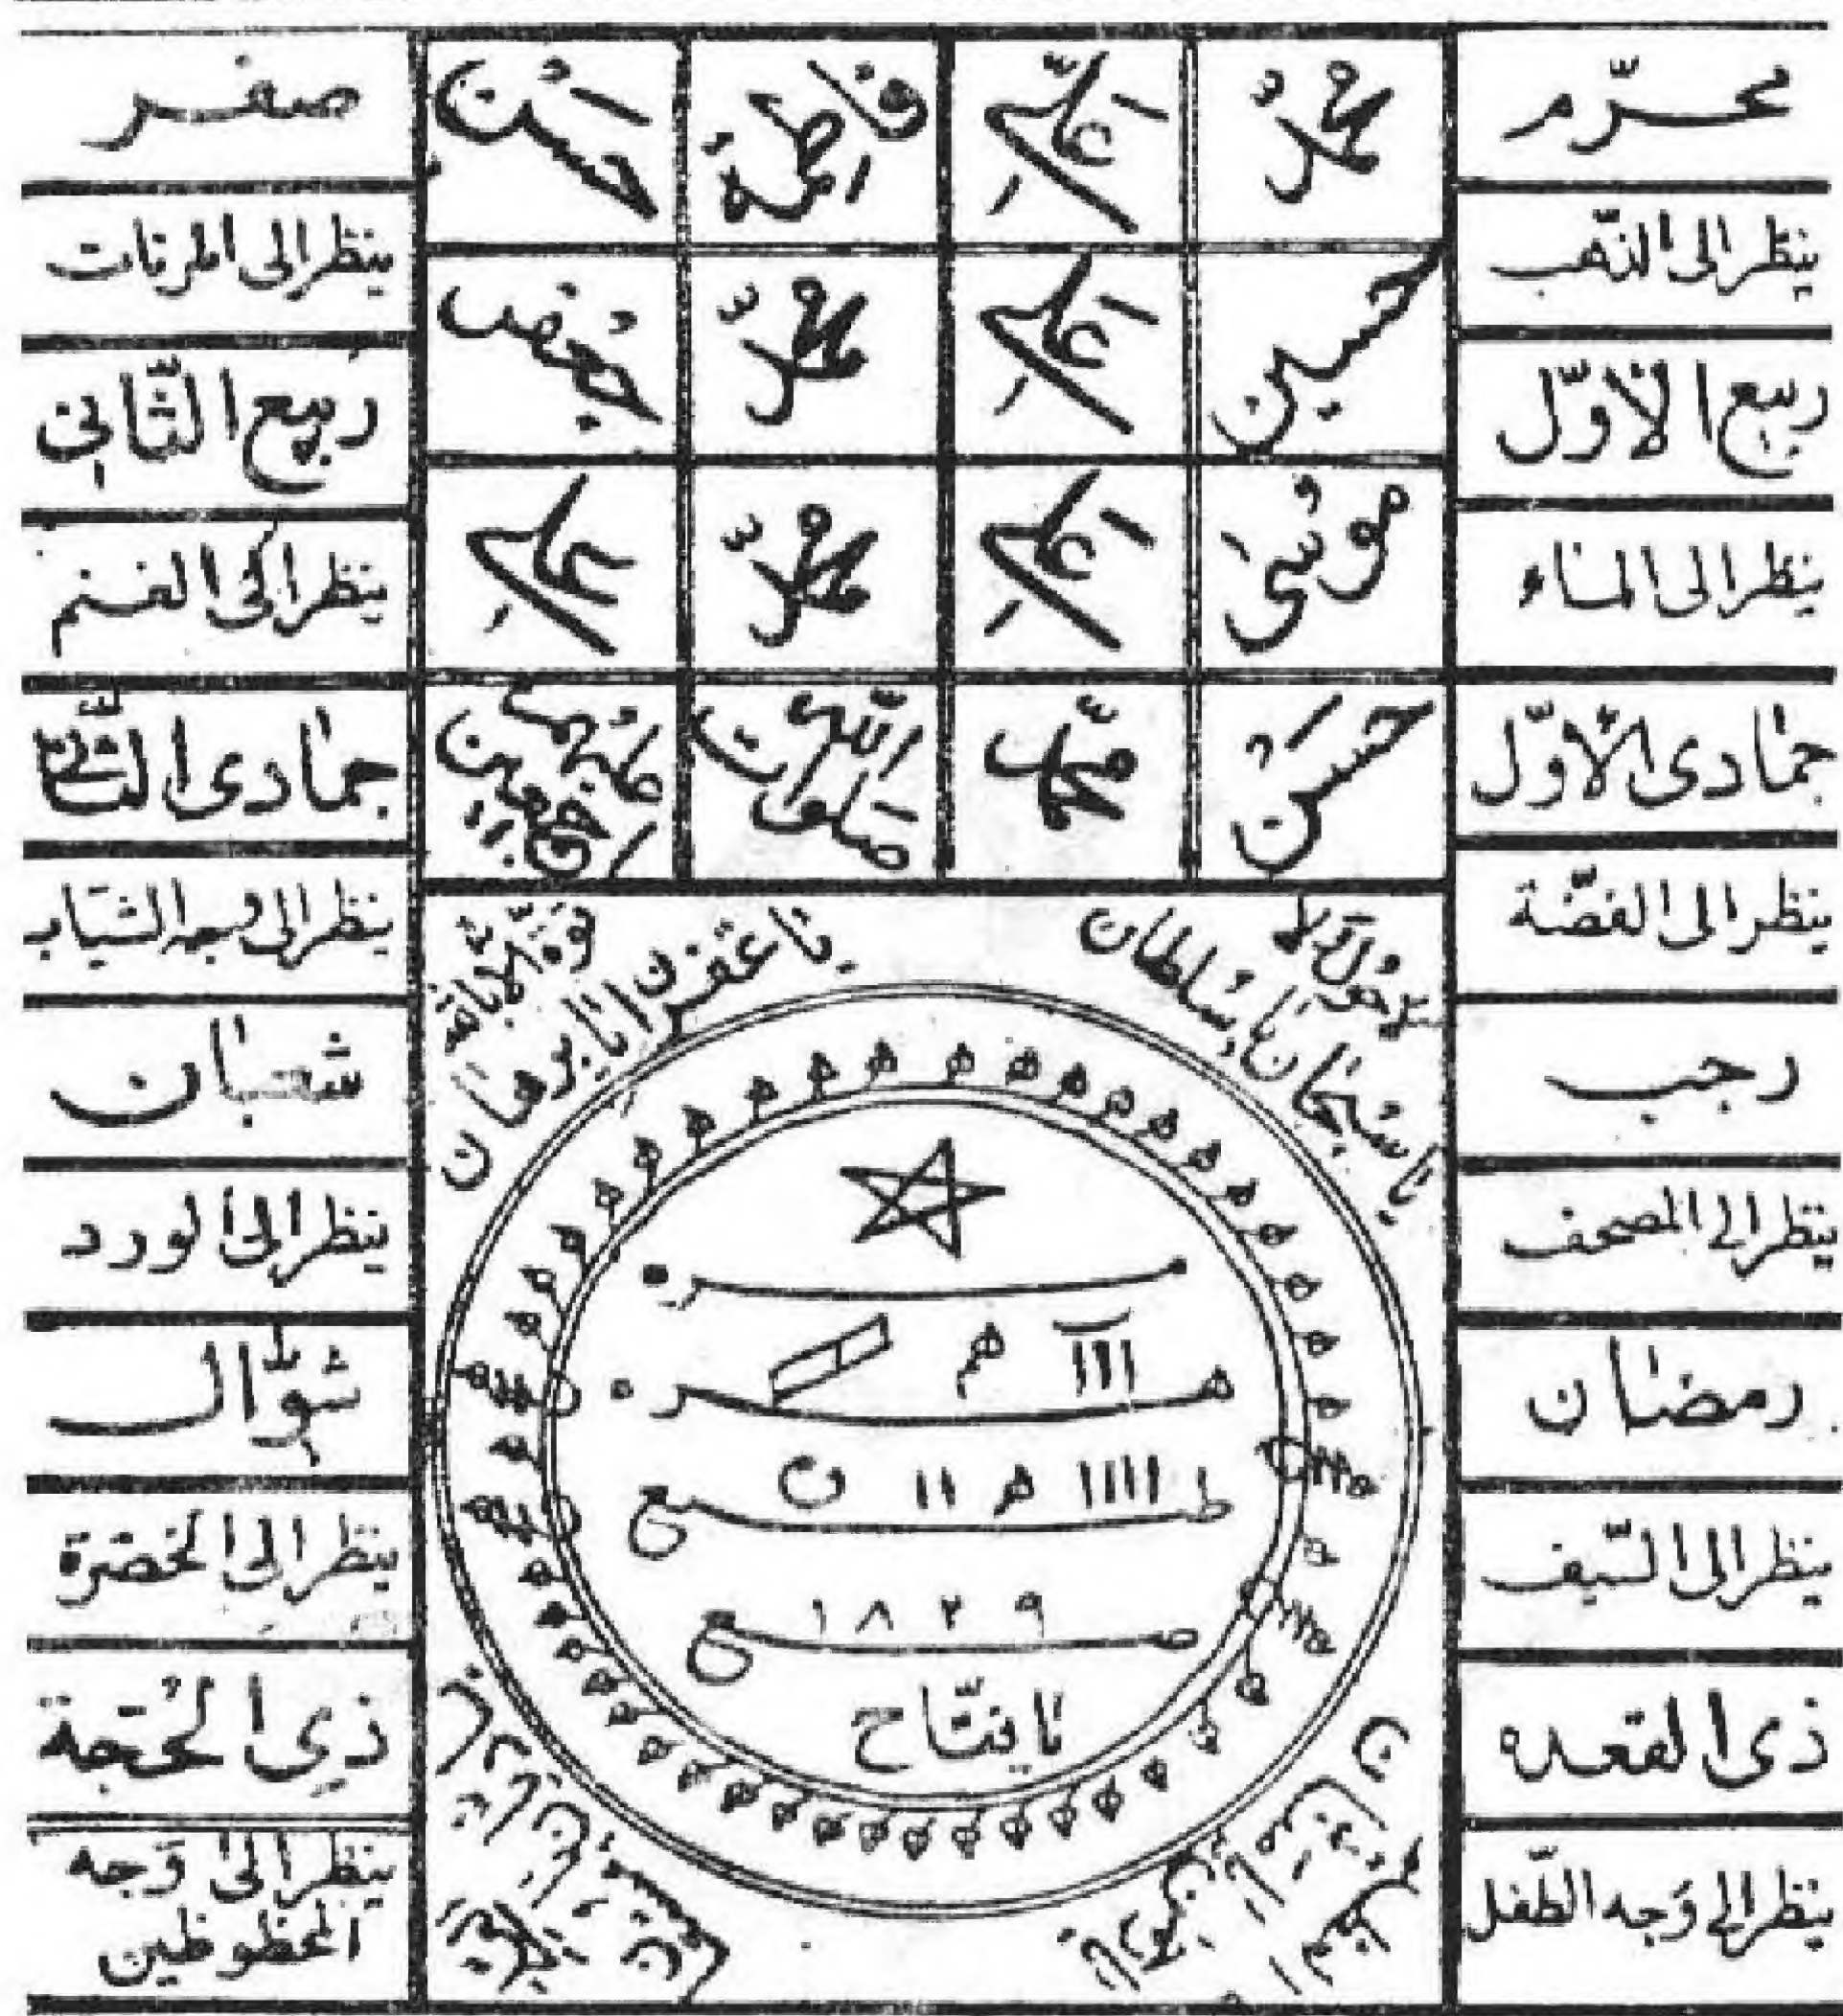 محرّم
ينظر الى الذّهب
ربيع الاوّل
ينظر الى الماء
جمادى الاوّل
ينظر الى الفضّة
رجب
ينظر الى المصحف
رمضان
ينظر الى السّيف
ذى القعده
ينظر الى وَجه الطّفل
محمّد عَليّ فاطمة حسَن
حسين عَليّ محمّد جعفر
موُسى عَليّ محمّد علي
حسَن محمّد صلوات اللّه عليهم اجمعين
لاحول ولا
قوّة الّا بالله
يا سبحان يا سلطان
يا غفران يا برهان
هـ ااا هم
ط اااا هـ اا ن ع
صـ ١٨٢٩ ـع
يا فتّاح
العلي العظيم
صفر
ينظر الى المرئات
ربيع الثّاني
ينظر الى الغنم
جمادى الثّاني
ينظر الى وجه الشياب
شعبان
ينظر الى الورد
شوّال
ينظر الى الخضرة
ذي الحجة
ينظر الى وَجه
المحظوظين